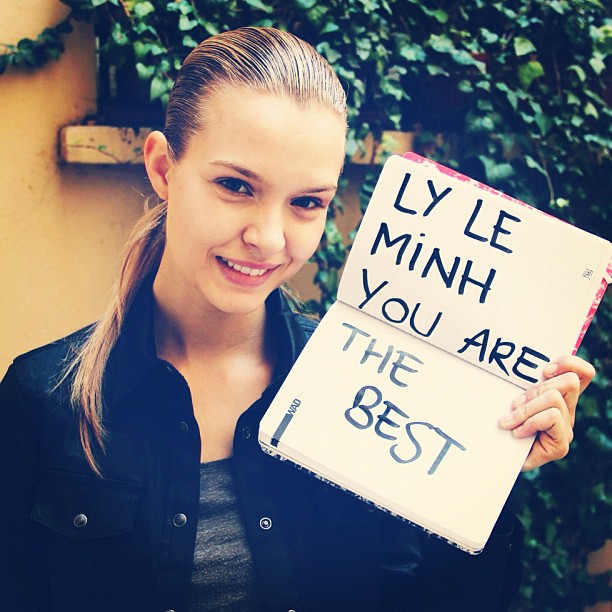 LY LE
MiNH
YOU ARE
THE
BEST
WAD